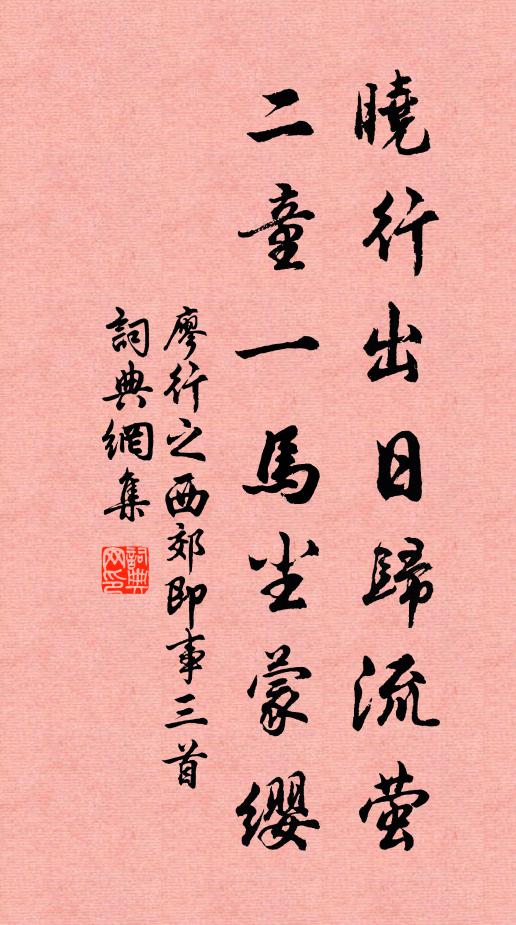 曉行出日歸流螢
二童一馬尘蒙纓
廖行之西郊即事三首
詞典網集
詞典网印